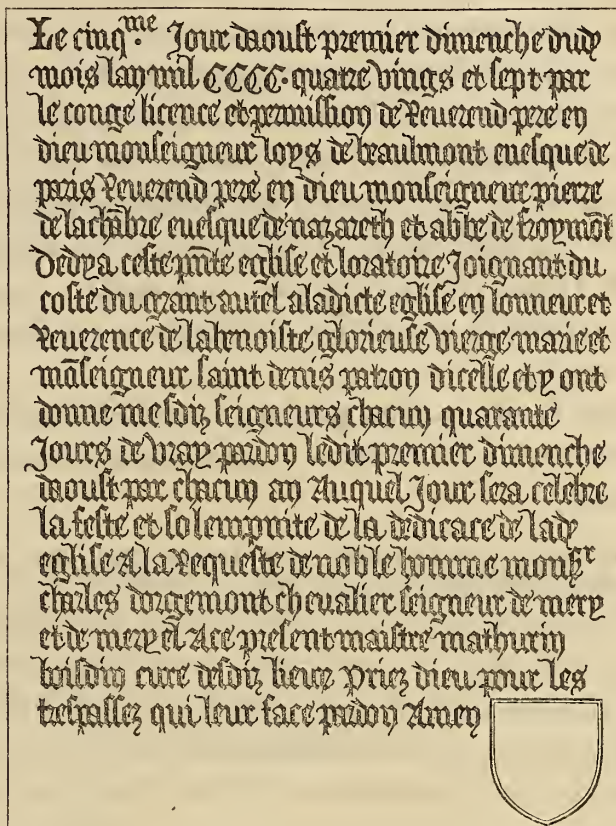 Le cinqme Jour daoust premier dimenche dudy
mois lan mil CCCC quatre vings et sept par
le conge licence et permission de Reuerend pere en
dieu monseigneur loys de beaulmont euesque de
paris Reuerend pere en dieu monseigneur pierre
de la chābre euesque de nazareth et abbe de froymōt
Dedya ceste pn̄te eglise et loratoire Joignant du
coste du grant autel a ladicte eglise en lonneur et
Reuerence de la benoiste glorieuse vierge marie et
mōseigneur saint denis patron dicelle et y ont
donne mesdiz seigneurs chacun quarante
Jours de vray pardon ledit premier dimenche
daoust par chacun an Auquel Jour sera celebre
la feste et solempnite de la dedicace de lady
eglise A la Requeste de noble homme monsr
charles dorgemont cheualier seigneur de mery
et de mery el Ace present maistre mathurin
desdiz lieux Priez dieu pour les
trespassez qui leur face pardon Amen